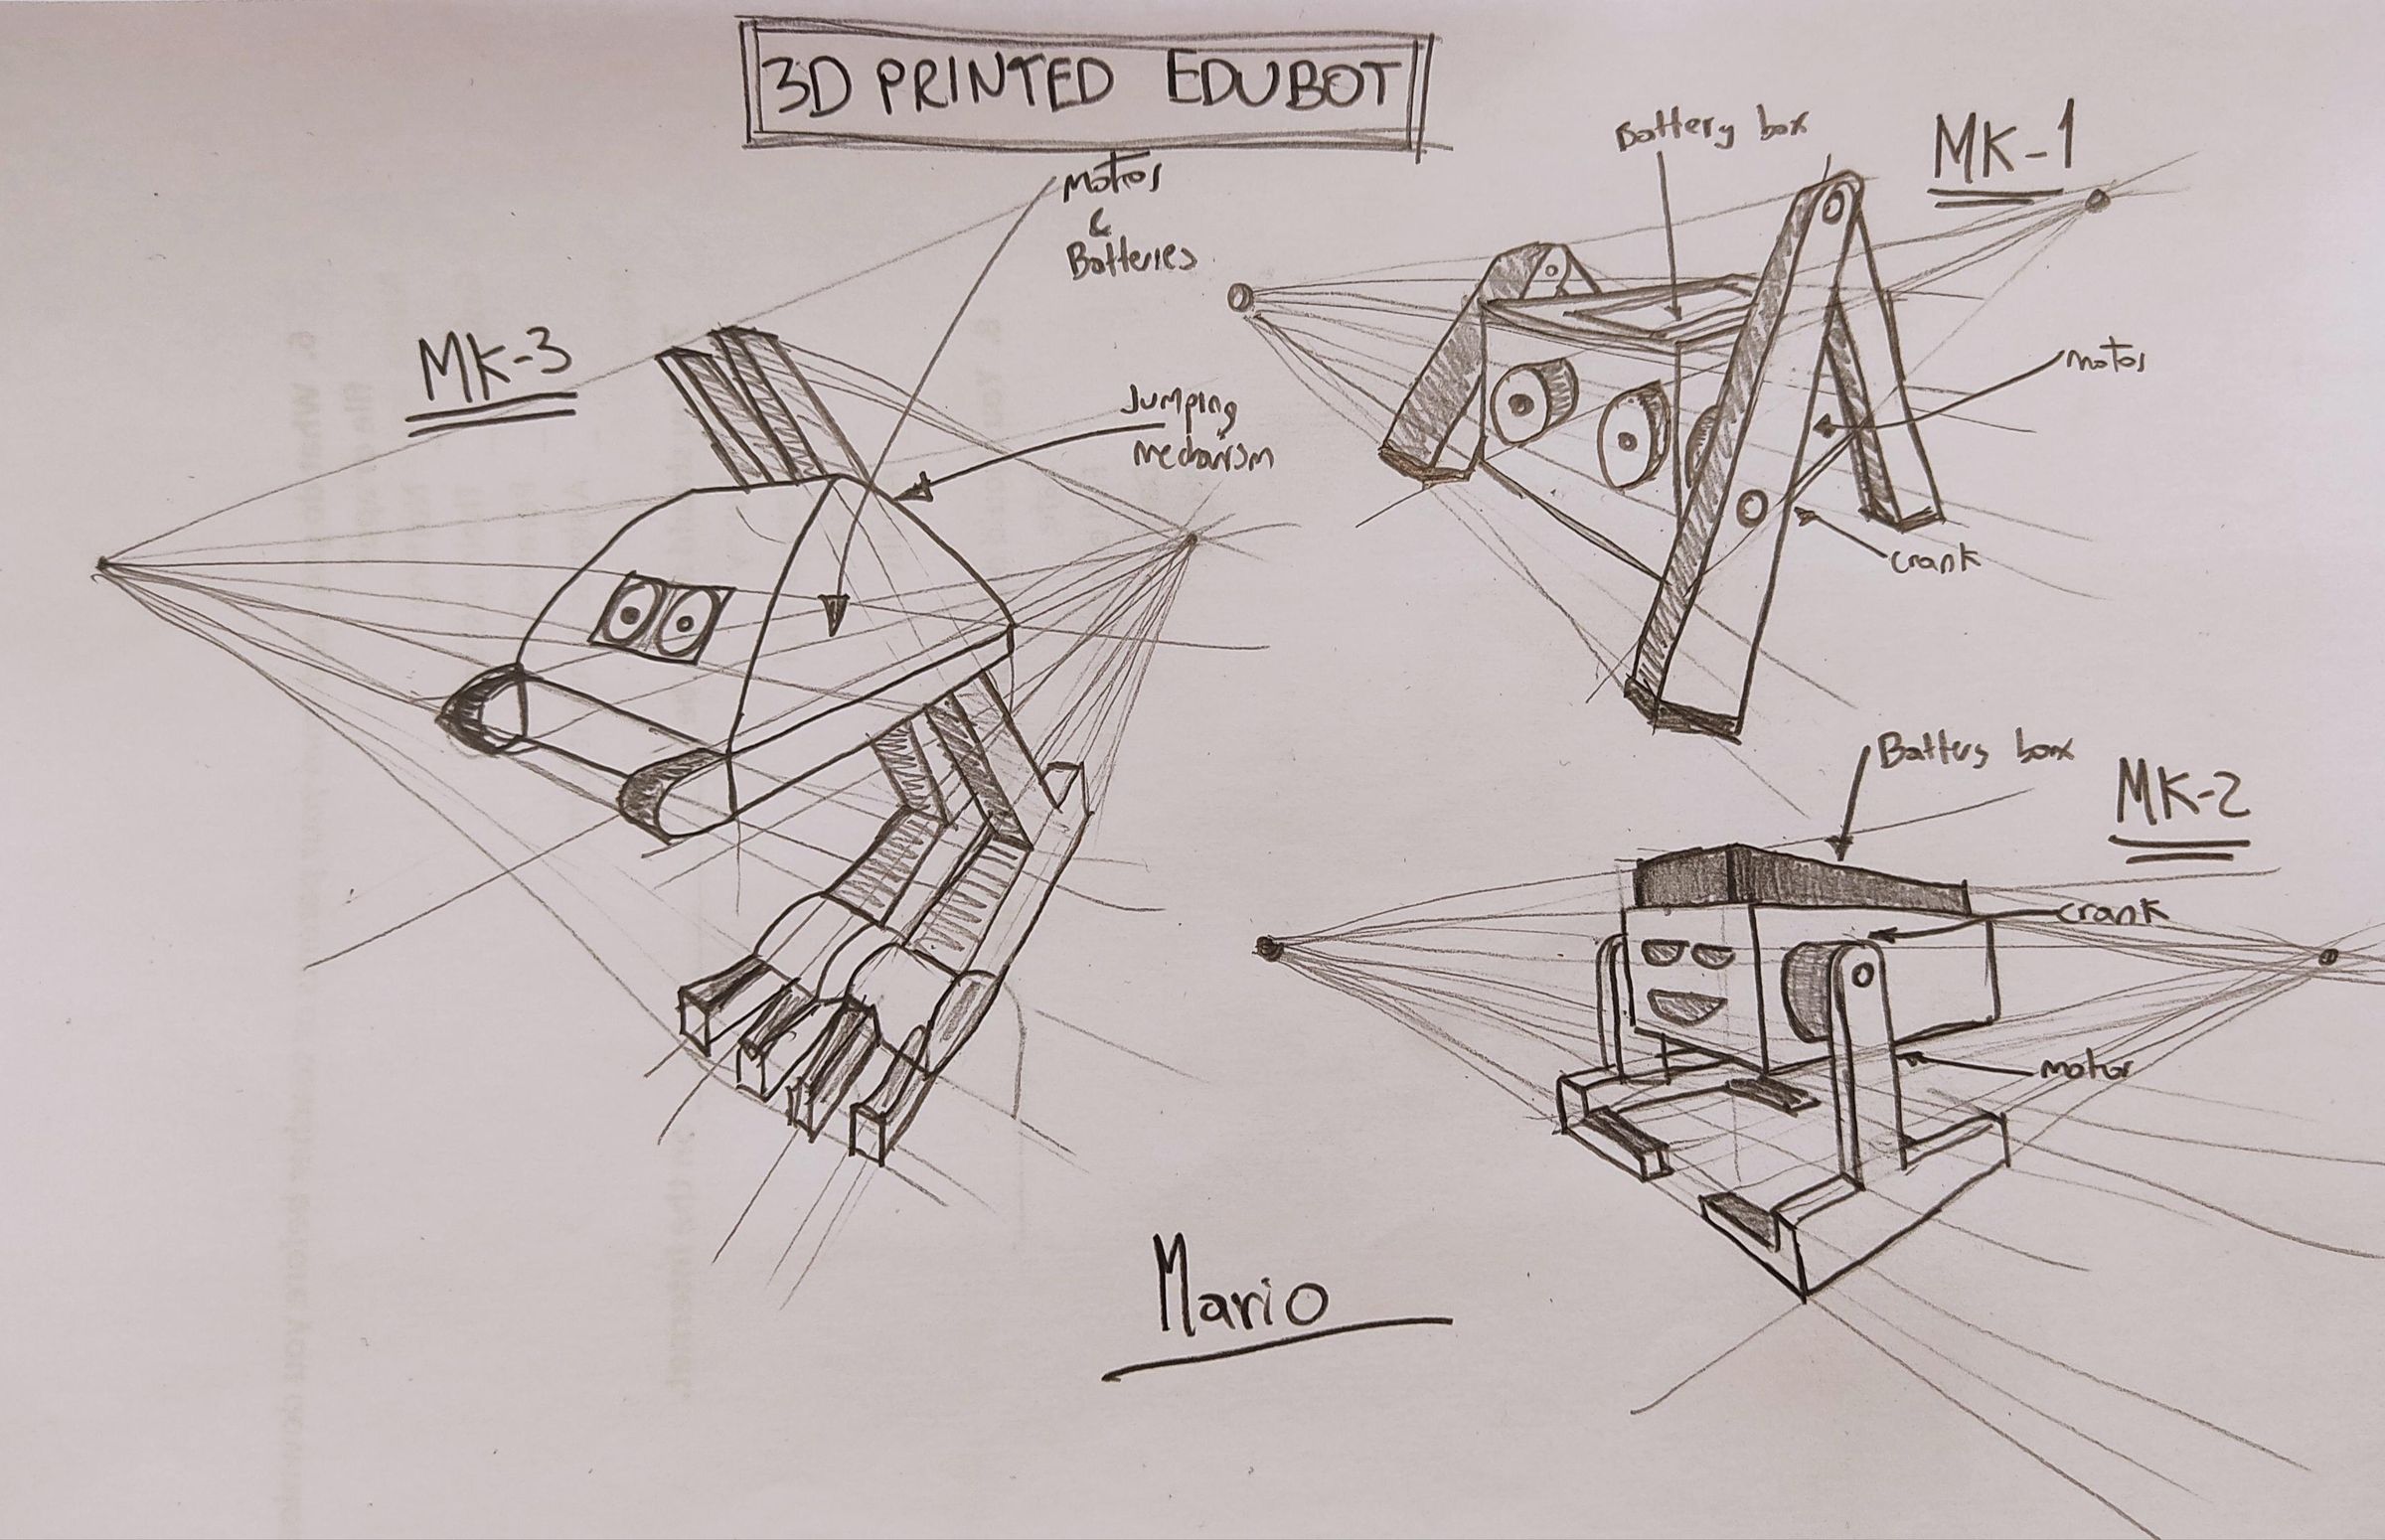 3D PRINTED EDUBOT
MK-3
Motor
&
Batteries
Jumping
mechanism
MK-1
Battery box
motor
crank
MK-2
Battery box
crank
motor
Mario